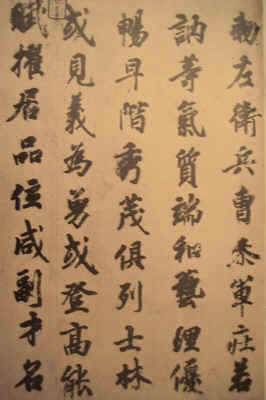 勅左衛兵曹参軍莊若
訥等氣質端和藝理優
暢早階秀茂俱列士林
或見義為勇或登高能
賦擢居品位咸副才名